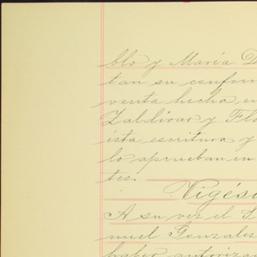 blo y María D
tan su confor
venta hecha en
Zaldivar y Fl
ésta escritura y
lo aprueban en
tes.
Vigési
A su vez el S
muel Gonzales
haber autoriza